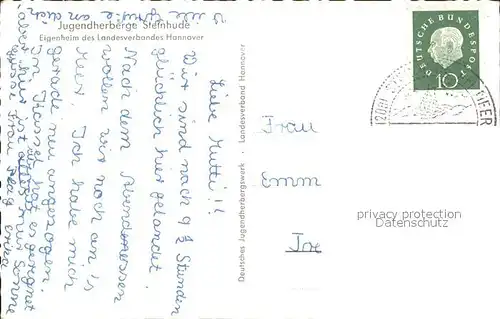 Jugendherberge Steinhude
Eigenheim des Landesverbandes Hannover
Liebe Mutti!!
Wir sind nach 9 ½ Stunden
glücklich hier gelandet.
Nach dem Abendessen
wollen wir noch an's
Meer. Ich habe mich
gerade neu angezogen.
In Kassel hat es geregnet
aber hier ist alles nur Sonne
Deutsches Jugendherbergswerk · Landesverband Hannover
DEUTSCHE BUNDESPOST
10
MEER
Frau
Emm
privacy protection
Datenschutz